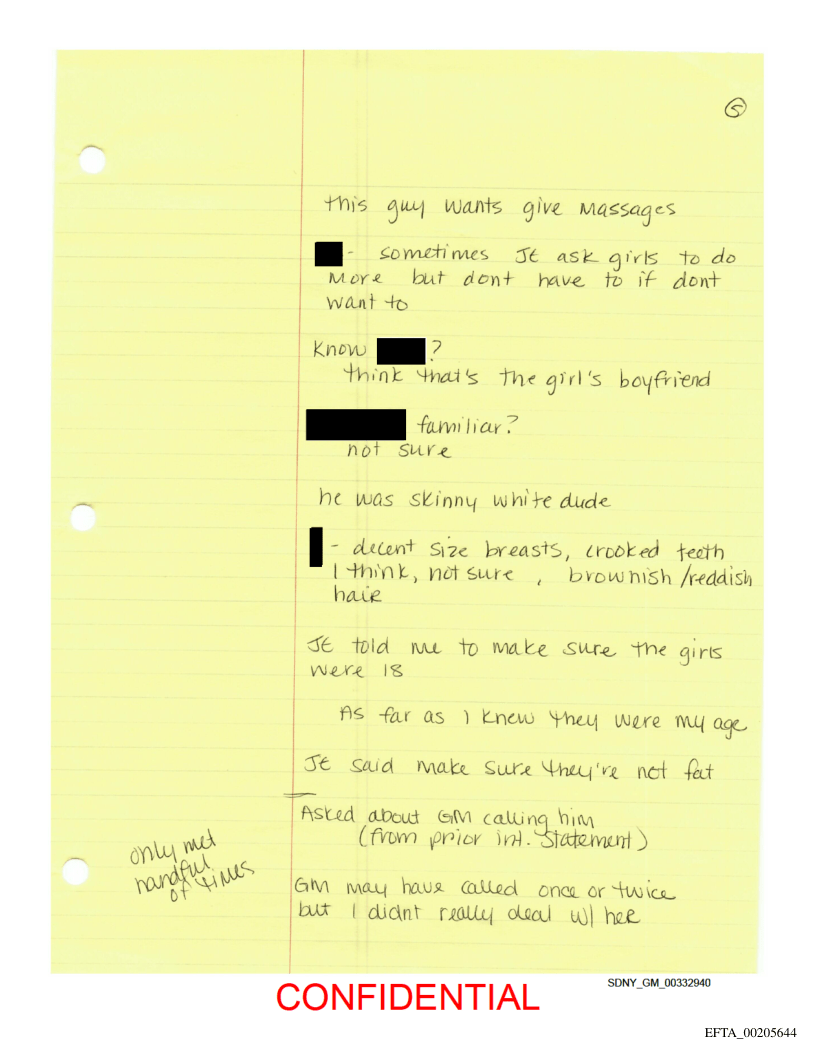 5
this guy wants give massages
- sometimes JE ask girls to do
more but dont have to if dont
want to
Know ?
think that's the girl's boyfriend
familiar?
not sure
he was skinny white dude
- decent size breasts, crooked teeth
I think, not sure , brownish/reddish
hair
JE told me to make sure the girls
were 18
As far as I knew they were my age
JE said make sure they're not fat
Asked about GM calling him
(from prior int. statement)
only met
handful
of times
GM may have called once or twice
but I didnt really deal w/ her
SDNY_GM_00332940
CONFIDENTIAL
EFTA_00205644